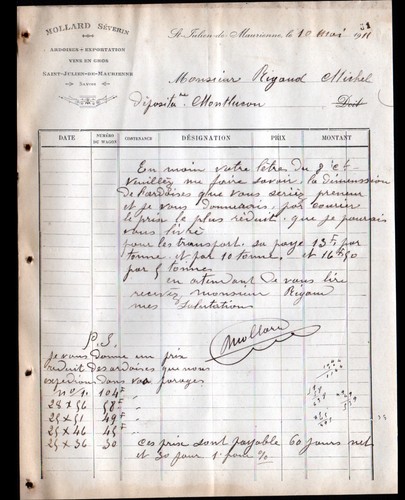 MOLLARD SÉVERIN
ARDOISES * EXPORTATION
VINS EN GROS
SAINT-JULIEN-DE-MAURIENNE
SAVOIE
St-Julien-de-Maurienne, le 10 Mai 1911
31
Monsieur Rigaud Michel
déposita Montluçon
Doit
DATE NUMÉRO DU WAGON CONTENANCE DÉSIGNATION PRIX MONTANT
En main votre lêtres du 8 ct
veuillez me faire savoir la dimenssion
de l'ardoises que vous seriez preneur
et je vous donnerais, par courier
le prix le plus réduit, que je pourais
vous livré
pour les transport, sa paye 13 F par
tonne et par 10 tonne. et 16 F 50
par 5 tonnes
en attendant de vous lire
recevez monsieur Rigaud
mes Salutations
Mollard
P. S.
Je vous donne un prix
réduit des ardoises que nous
expedions dans vos parages
No 1. 104 F
28 x 56 58 F
25 x 51 49 F
25 x 46 45 F
25 x 36 30
ces prise sont payable 60 jours net
et 30 jour